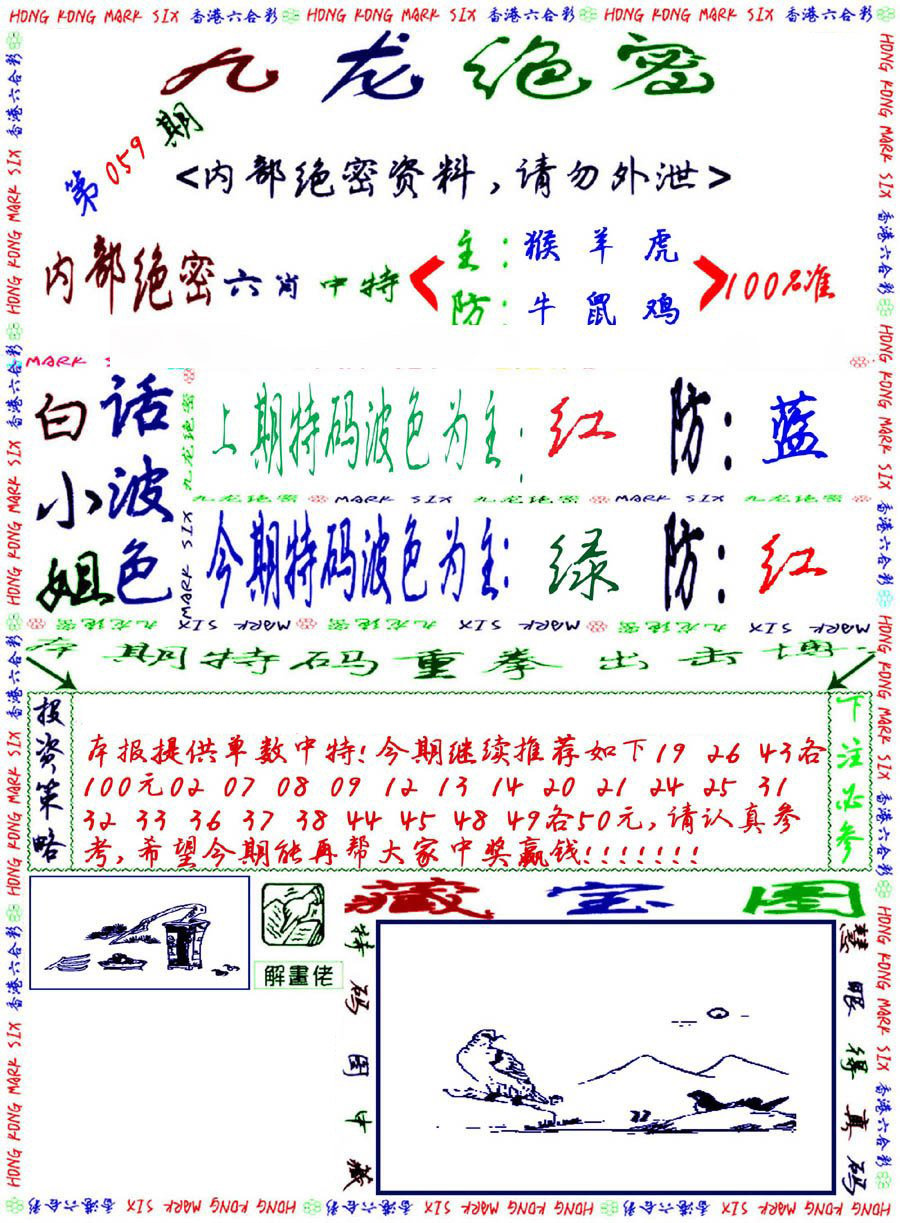 HONG KONG MARK SIX 香港六合彩 HONG KONG MARK SIX 香港六合彩 HONG KONG MARK SIX 香港六合彩
九龙绝密
第059期
<内部绝密资料,请勿外泄>
内部绝密六肖中特
主:猴羊虎
防:牛鼠鸡
100%准
MARK
白话
小波
姐色
上期特码波色为主:红 防:蓝
九龙绝密 MARK SIX 九龙绝密 MARK SIX 九龙绝密
今期特码波色为主:绿 防:红
九龙绝密 MARK SIX
九龙绝密 MARK SIX 九龙绝密 MARK SIX 九龙绝密 MARK SIX
本期特码重拳出击博
投资策略
本报提供单数中特!今期继续推荐如下19 26 43各
100元02 07 08 09 12 13 14 20 21 24 25 31
32 33 36 37 38 44 45 48 49各50元,请认真参
考,希望今期能再帮大家中奖赢钱!!!!!!!
下注必参
解畫佬
藏宝图
特码图中藏
慧眼得真码
HONG KONG MARK SIX 香港六合彩 HONG KONG MARK SIX 香港六合彩 HONG KONG MARK SIX 香港六合彩